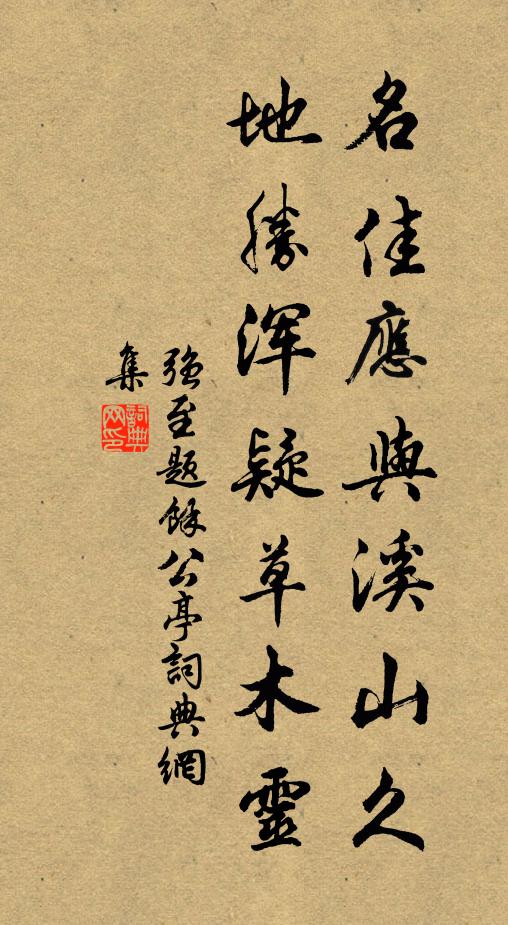 名佳應與溪山久
地勝渾疑草木靈
強至題餘公亭詞典網
集
詞典網印